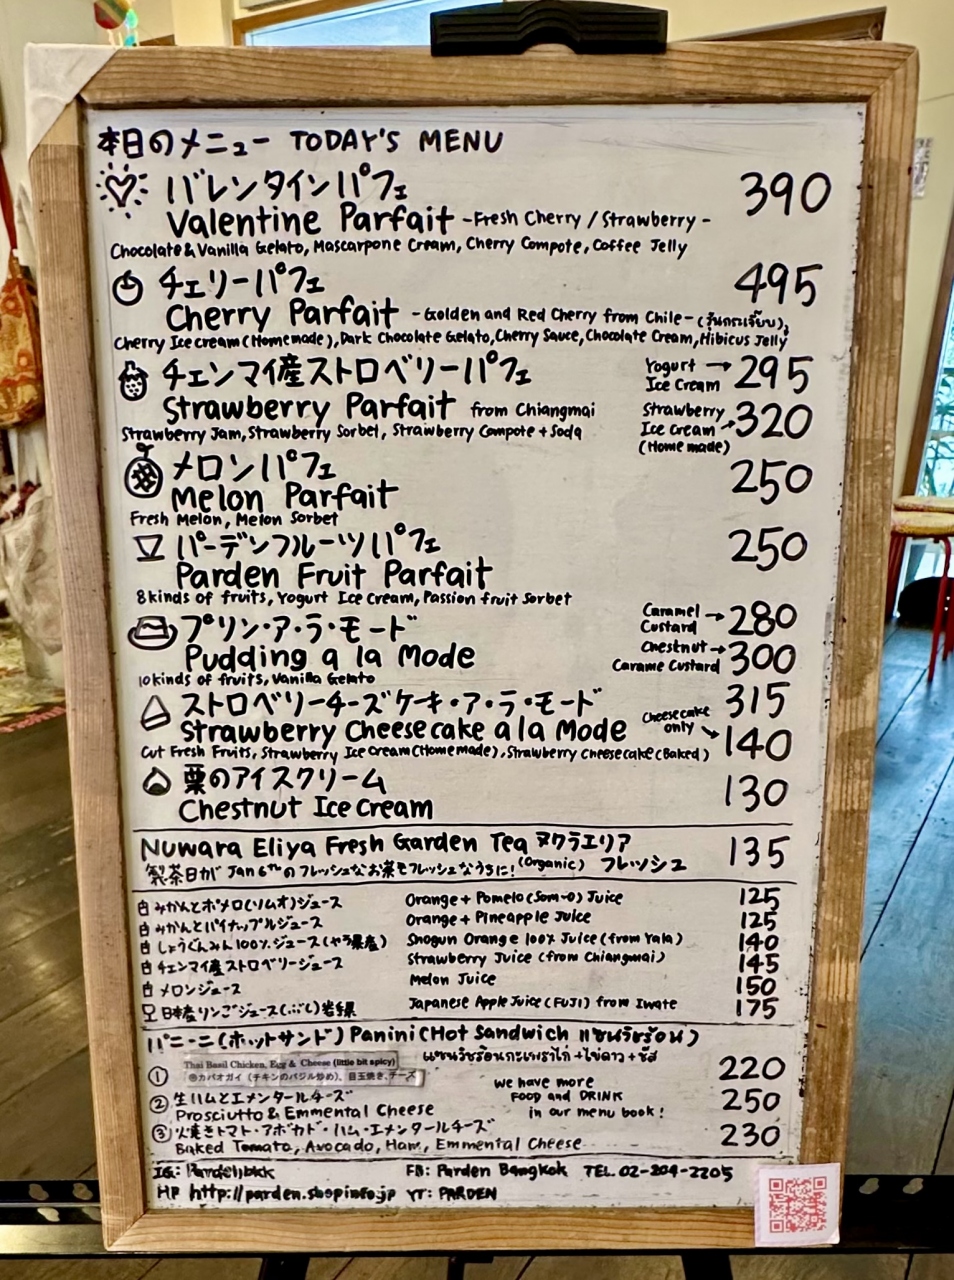 本日のメニュー TODAY'S MENU
バレンタインパフェ 390
Valentine Parfait -Fresh Cherry / Strawberry-
Chocolate & Vanilla Gelato, Mascarpone Cream, Cherry Compote, Coffee Jelly
チェリーパフェ 495
Cherry Parfait -Golden and Red Cherry from Chile-
Cherry Ice cream (Homemade), Dark Chocolate Gelato, Cherry Sauce, Chocolate Cream, Hibicus Jelly
チェンマイ産ストロベリーパフェ Yogurt Ice Cream → 295
Strawberry Parfait from Chiangmai Strawberry Ice Cream (Home made) → 320
Strawberry Jam, Strawberry Sorbet, Strawberry Compote + Soda
メロンパフェ 250
Melon Parfait
Fresh Melon, Melon Sorbet
パーデンフルーツパフェ 250
Parden Fruit Parfait
8kinds of fruits, Yogurt Ice Cream, Passion fruit Sorbet
プリン・ア・ラ・モード Caramel Custard → 280
Pudding a la Mode Chestnut → Carame Custard 300
10kinds of fruits, Vanilla Gelato
ストロベリーチーズケーキ・ア・ラ・モード 315
Strawberry Cheesecake a la Mode Cheesecake only → 140
Cut Fresh Fruits, Strawberry Ice cream (Homemade), Strawberry Cheesecake (Baked)
栗のアイスクリーム 130
Chestnut Ice Cream
Nuwara Eliya Fresh Garden Tea ヌワラエリア 135
製茶日が Jan 6th のフレッシュなお茶をフレッシュなうちに! (Organic) フレッシュ
みかんとポメロ(ソムオ)ジュース Orange + Pomelo (Som-O) Juice 125
みかんとパイナップルジュース Orange + Pineapple Juice 125
しょうぐんみかん100%ジュース(ヤラ県産) Shogun Orange 100% Juice (from Yala) 140
チェンマイ産ストロベリージュース Strawberry Juice (from Chiangmai) 145
メロンジュース Melon Juice 150
日本産リンゴジュース(ふじ)岩手県 Japanese Apple Juice (FUJI) from Iwate 175
パニーニ(ホットサンド) Panini (Hot Sandwich แซนวิชร้อน)
แซนวิชร้อนกะเพราไก่+ไข่ดาว+ชีส
① Thai Basil Chicken, Egg & Cheese (little bit spicy) 220
カパオガイ (チキンのバジル炒め)、目玉焼き、チーズ
we have more FOOD and DRINK in our menu book!
② 生ハムとエメンタールチーズ 250
Prosciutto & Emmental Cheese
③ 火焼きトマト・アボカド・ハム・エメンタールチーズ 230
Baked Tomato, Avocado, Ham, Emmental Cheese
IG: FB: Parden Bangkok TEL. 02-204-2205
HP http://parden.shopinfo.jp YT: PARDEN